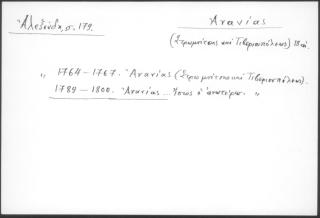 Ἀλεξούδη, σ. 179.
Ἀνανίας
(Στρωμνίτσης καὶ Τιβεριουπόλεως) 18 αἰ.
„ 1764 – 1767. Ἀνανίας (Στρωμνίτσης καὶ Τιβεριουπόλεως).
1789 – 1800. Ἀνανίας... Ἴσως ὁ ἀνωτέρω. „